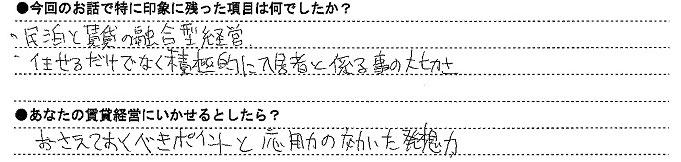 ●今回のお話で特に印象に残った項目は何でしたか？
・民泊と賃貸の融合型経営
・任せるだけでなく積極的に入居者と係る事の大切さ
●あなたの賃貸経営にいかせるとしたら？
おさえておくべきポイントと応用力の効いた発想力